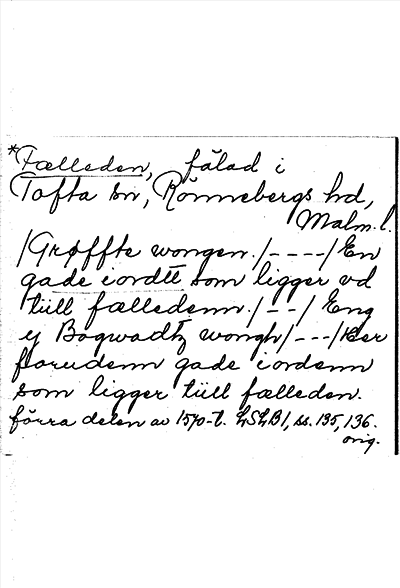 *Fælleden, fälad i
Tofta sn, Rönnebergs hd,
Malm.l.
/Grøffte wongen./----/En
gade iordtt som ligger vd
tiill fælledenn./--/Eng
ij Bogwadtz wongh/---/Her
forudenn gade iordenn
som ligger tiill fælleden.
förra delen av 1570-t. LSLB1, ss. 135, 136.
orig.